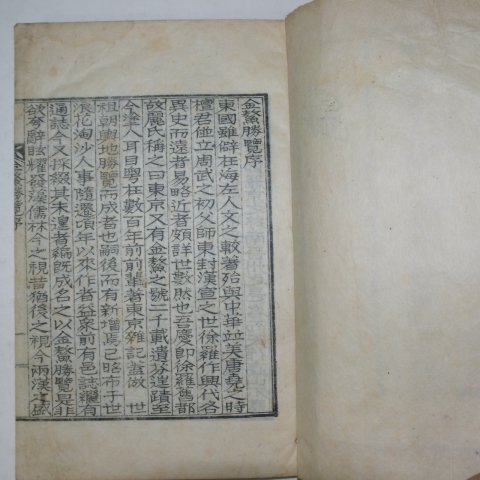 金鰲勝覽序
東國雖僻在海左人文之較著殆與中華竝美唐堯之時
檀君竝立周武之初父師東封漢宣之世徐羅作興代各
異史而遠者易略近者頗詳世數然也吾慶卽徐羅舊都
故麗氏稱之曰東京又有金鰲之號二千載遺芬逞蹟至
今塗人耳目粤在數百年前前輩著東京雜記盖倣 世
祖朝輿地勝覽而成者也嗣後而有新增焉已略布于世
浪花淘沙人事隨遷頃年以來作者益衆前有邑誌繼有
通誌今又採掇其未遑者編旣成名之以金鰲勝覽是非
欲夸辭眩耀後漢儒林今之視昔猶後之視今兩漢之盛
金鰲勝覽序